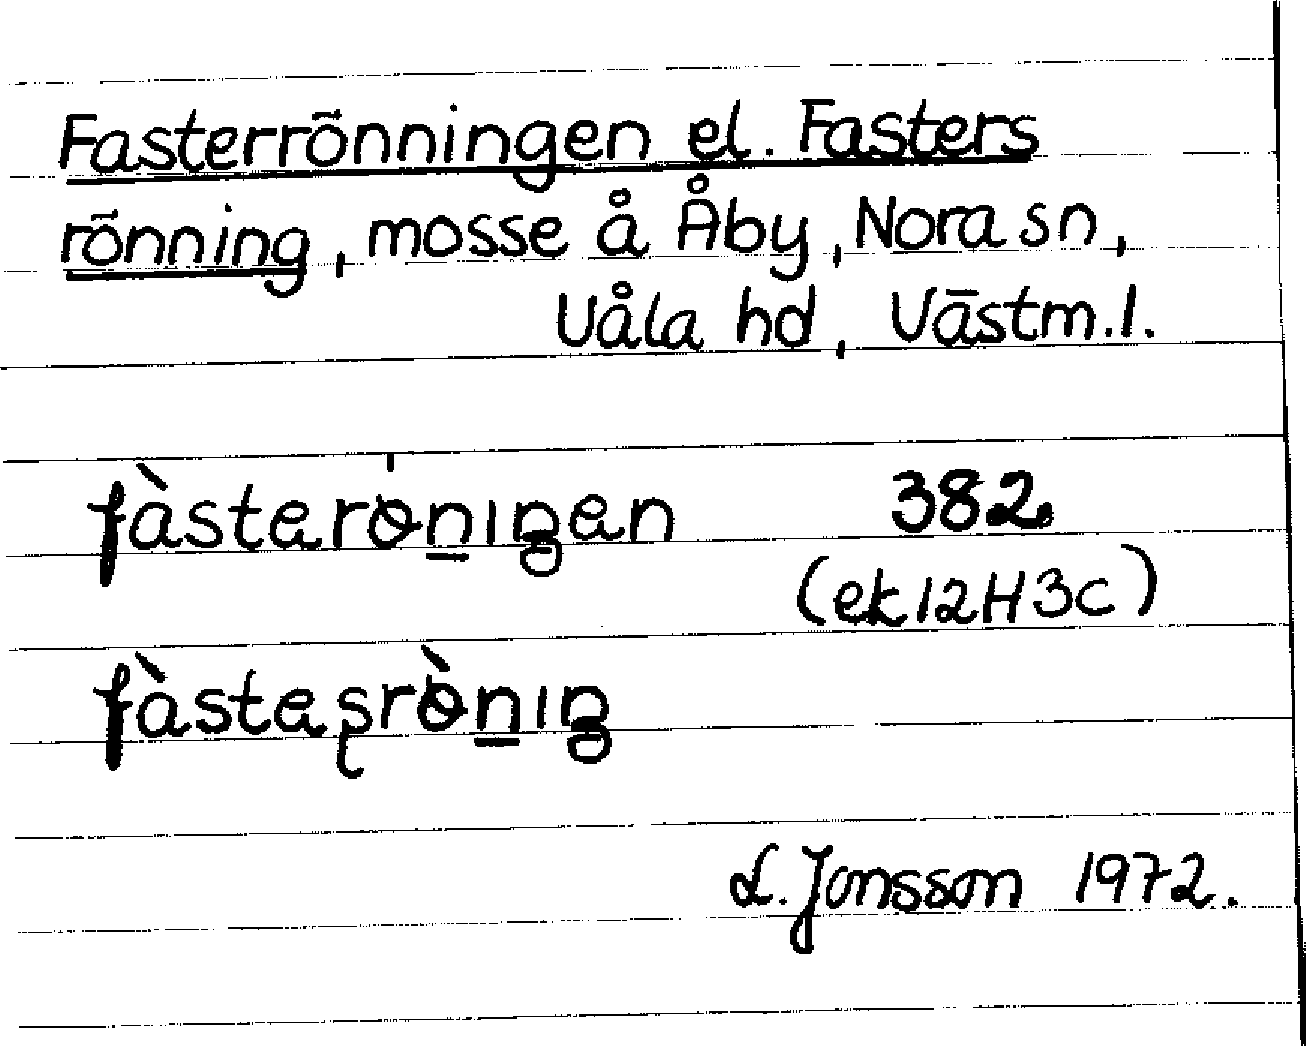 Fasterrönningen el. Fasters
rönning, mosse å Åby, Nora sn,
Våla hd, Västm.l.
fàsterö̀ningen 382.
(ek 12H3c)
fàstesrö̀ning
L. Jonsson 1972.